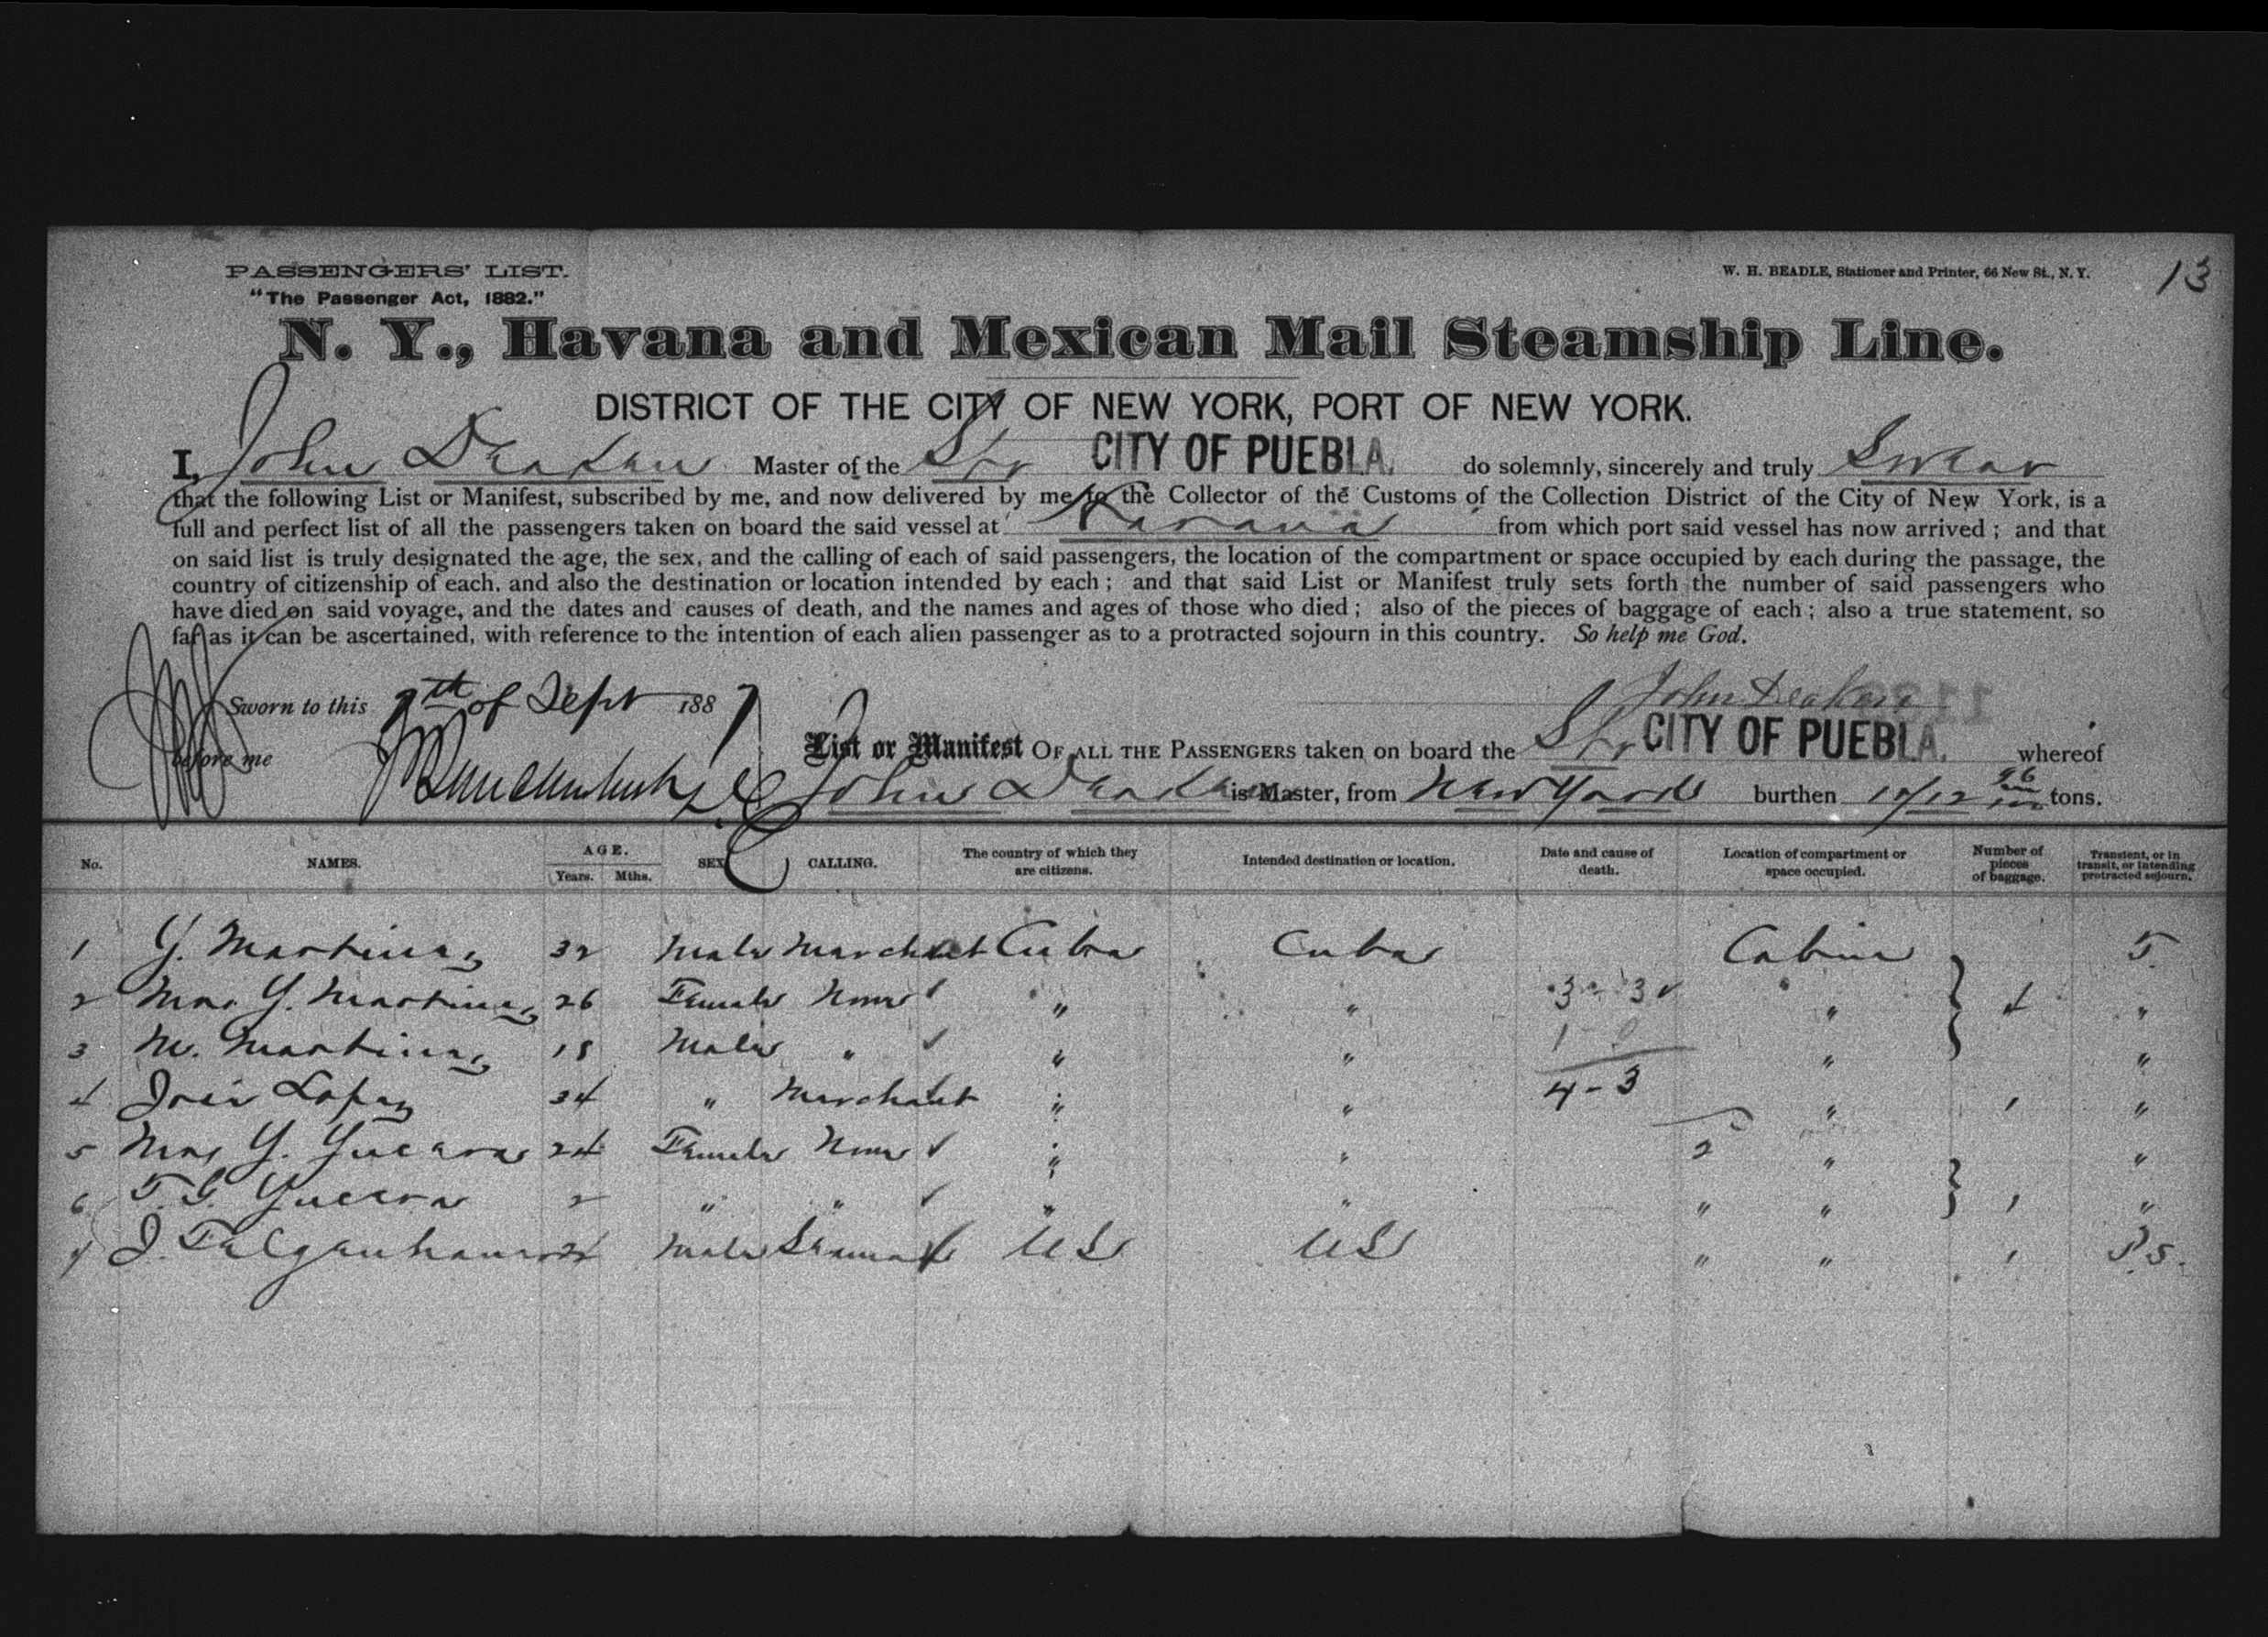 PASSENGERS' LIST.
"The Passenger Act, 1882."
W. H. BEADLE, Stationer and Printer, 66 New St., N. Y.
13
N. Y., Havana and Mexican Mail Steamship Line.
DISTRICT OF THE CITY OF NEW YORK, PORT OF NEW YORK.
I, John Deaken Master of the Str CITY OF PUEBLA. do solemnly, sincerely and truly Swear
that the following List or Manifest, subscribed by me, and now delivered by me to the Collector of the Customs of the Collection District of the City of New York, is a
full and perfect list of all the passengers taken on board the said vessel at Havana from which port said vessel has now arrived; and that
on said list is truly designated the age, the sex, and the calling of each of said passengers, the location of the compartment or space occupied by each during the passage, the
country of citizenship of each, and also the destination or location intended by each; and that said List or Manifest truly sets forth the number of said passengers who
have died on said voyage, and the dates and causes of death, and the names and ages of those who died; also of the pieces of baggage of each; also a true statement, so
far as it can be ascertained, with reference to the intention of each alien passenger as to a protracted sojourn in this country. So help me God.
John Deaken
Sworn to this 7th of Sept 1887
before me
List or Manifest OF ALL THE PASSENGERS taken on board the Str CITY OF PUEBLA. whereof
John Deaken is Master, from New York burthen tons.
No. NAMES. AGE. Years. Mths. SEX CALLING. The country of which they are citizens. Intended destination or location. Date and cause of death. Location of compartment or space occupied. Number of pieces of baggage. Transient, or in transit, or intending protracted sojourn.
1 Y. Martinez 32 Male Merchant Cuba Cuba Cabin T.
2 Mrs. Y. Martinez 26 Female None " " 3 - 3 " 4 "
3 M. Martinez 18 Male " " " 1 - 0 " "
4 José Lopez 34 " Merchant " " 4 - 3 " 1 "
5 Mrs Y. Guerra 24 Female None " " 2 " "
6 T. G. Guerra 2 " " " " " " 1 "
7 J. Felgenhauer 24 Male Seaman US US " " 1 P.S.